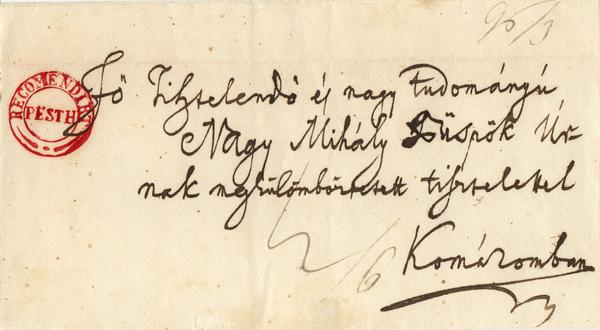 96/3
RECOMENDIRT
PESTH
Fö Tisztelendö és nagy Tudományú
Nagy Mihály Püspök Úr-
nak megkülömböztetett tisztelettel
2/6
Komáromban